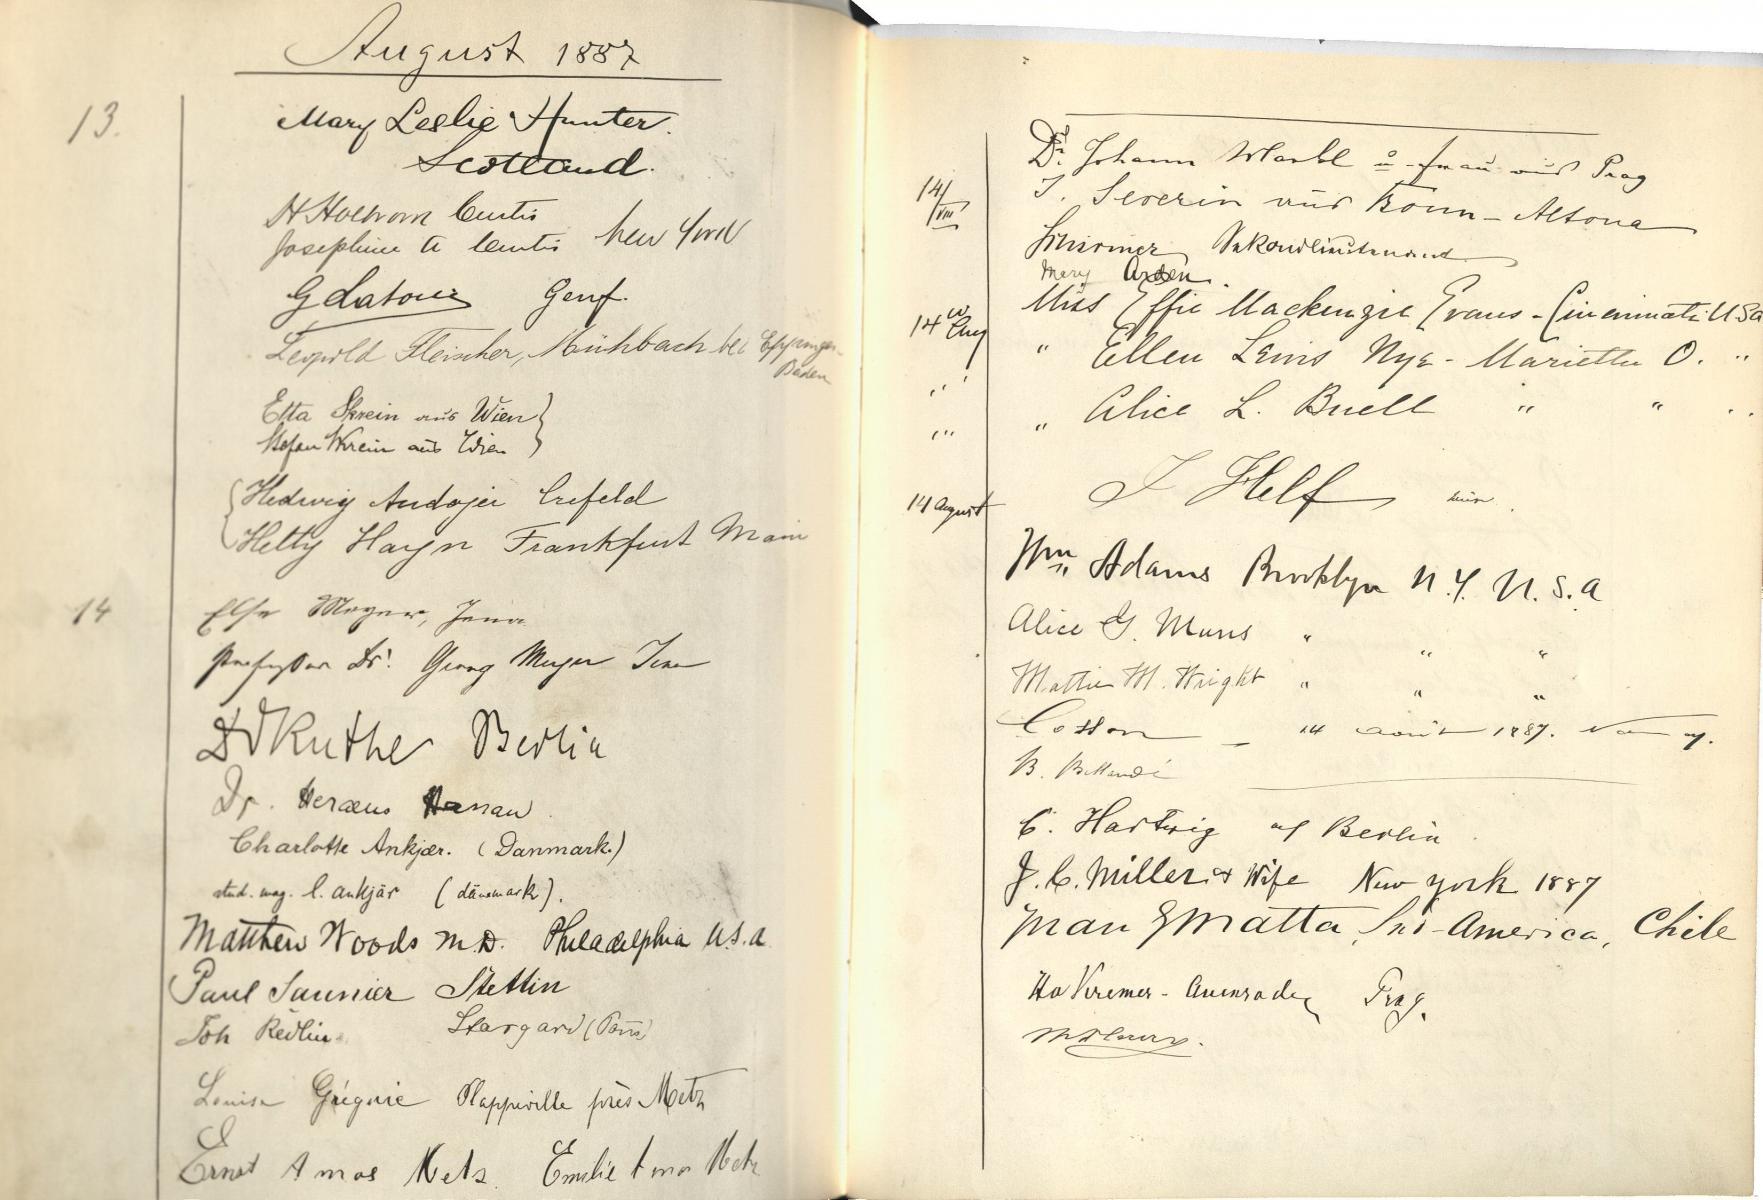 August 1887
13.
Mary Leslie Hunter.
Scotland.
H Holbrook Curtis
Josephine A Curtis New York
G Latour Genf.
Leopold Fleischer, Mühlbach bei Eppingen
Baden
Etta Skrein aus Wien
Stefan Skrein aus Wien
Hedwig Crefeld
Hetty Hayn Frankfurt Main
14
Else Meyer, Jena
Professor Dr. Georg Meyer Jena
Dr Ruthe Berlin
Dr. Heraeus Hanau
Charlotte Ankjær. (Danmark.)
stud. mag. C. Ankjär (dänemark).
Matthew Woods M.D. Philadelphia U.S.A
Paul Saunier Stettin
Joh Redlin Stargard (Pom)
Louise Grégoire Plappeville près Metz
Ernst Amos Metz. Emilie Amos Metz
Dr. Johann u. Frau aus Prag
14/VIII
J. Severin aus Bonn-Altona
Schirmer Sekondlieutenant
Mary Arden.
14 Aug Miss Effie Mackenzie Evans - Cincinnati U.S.A
" " Ellen Lewis Nye - Marietta O. "
" " Alice L. Buell " " "
14 August J Helf
Wm Adams Brooklyn N.Y. U.S.A
Alice G. " " "
Mattie M. Wright " " "
Cosson 14 août 1887. Nancy.
B.
C. Hartwig of Berlin
J. C. Miller & Wife New York 1887
Juan G Matta, Sud-America, Chile
Kremer-Auenrode, Prag.